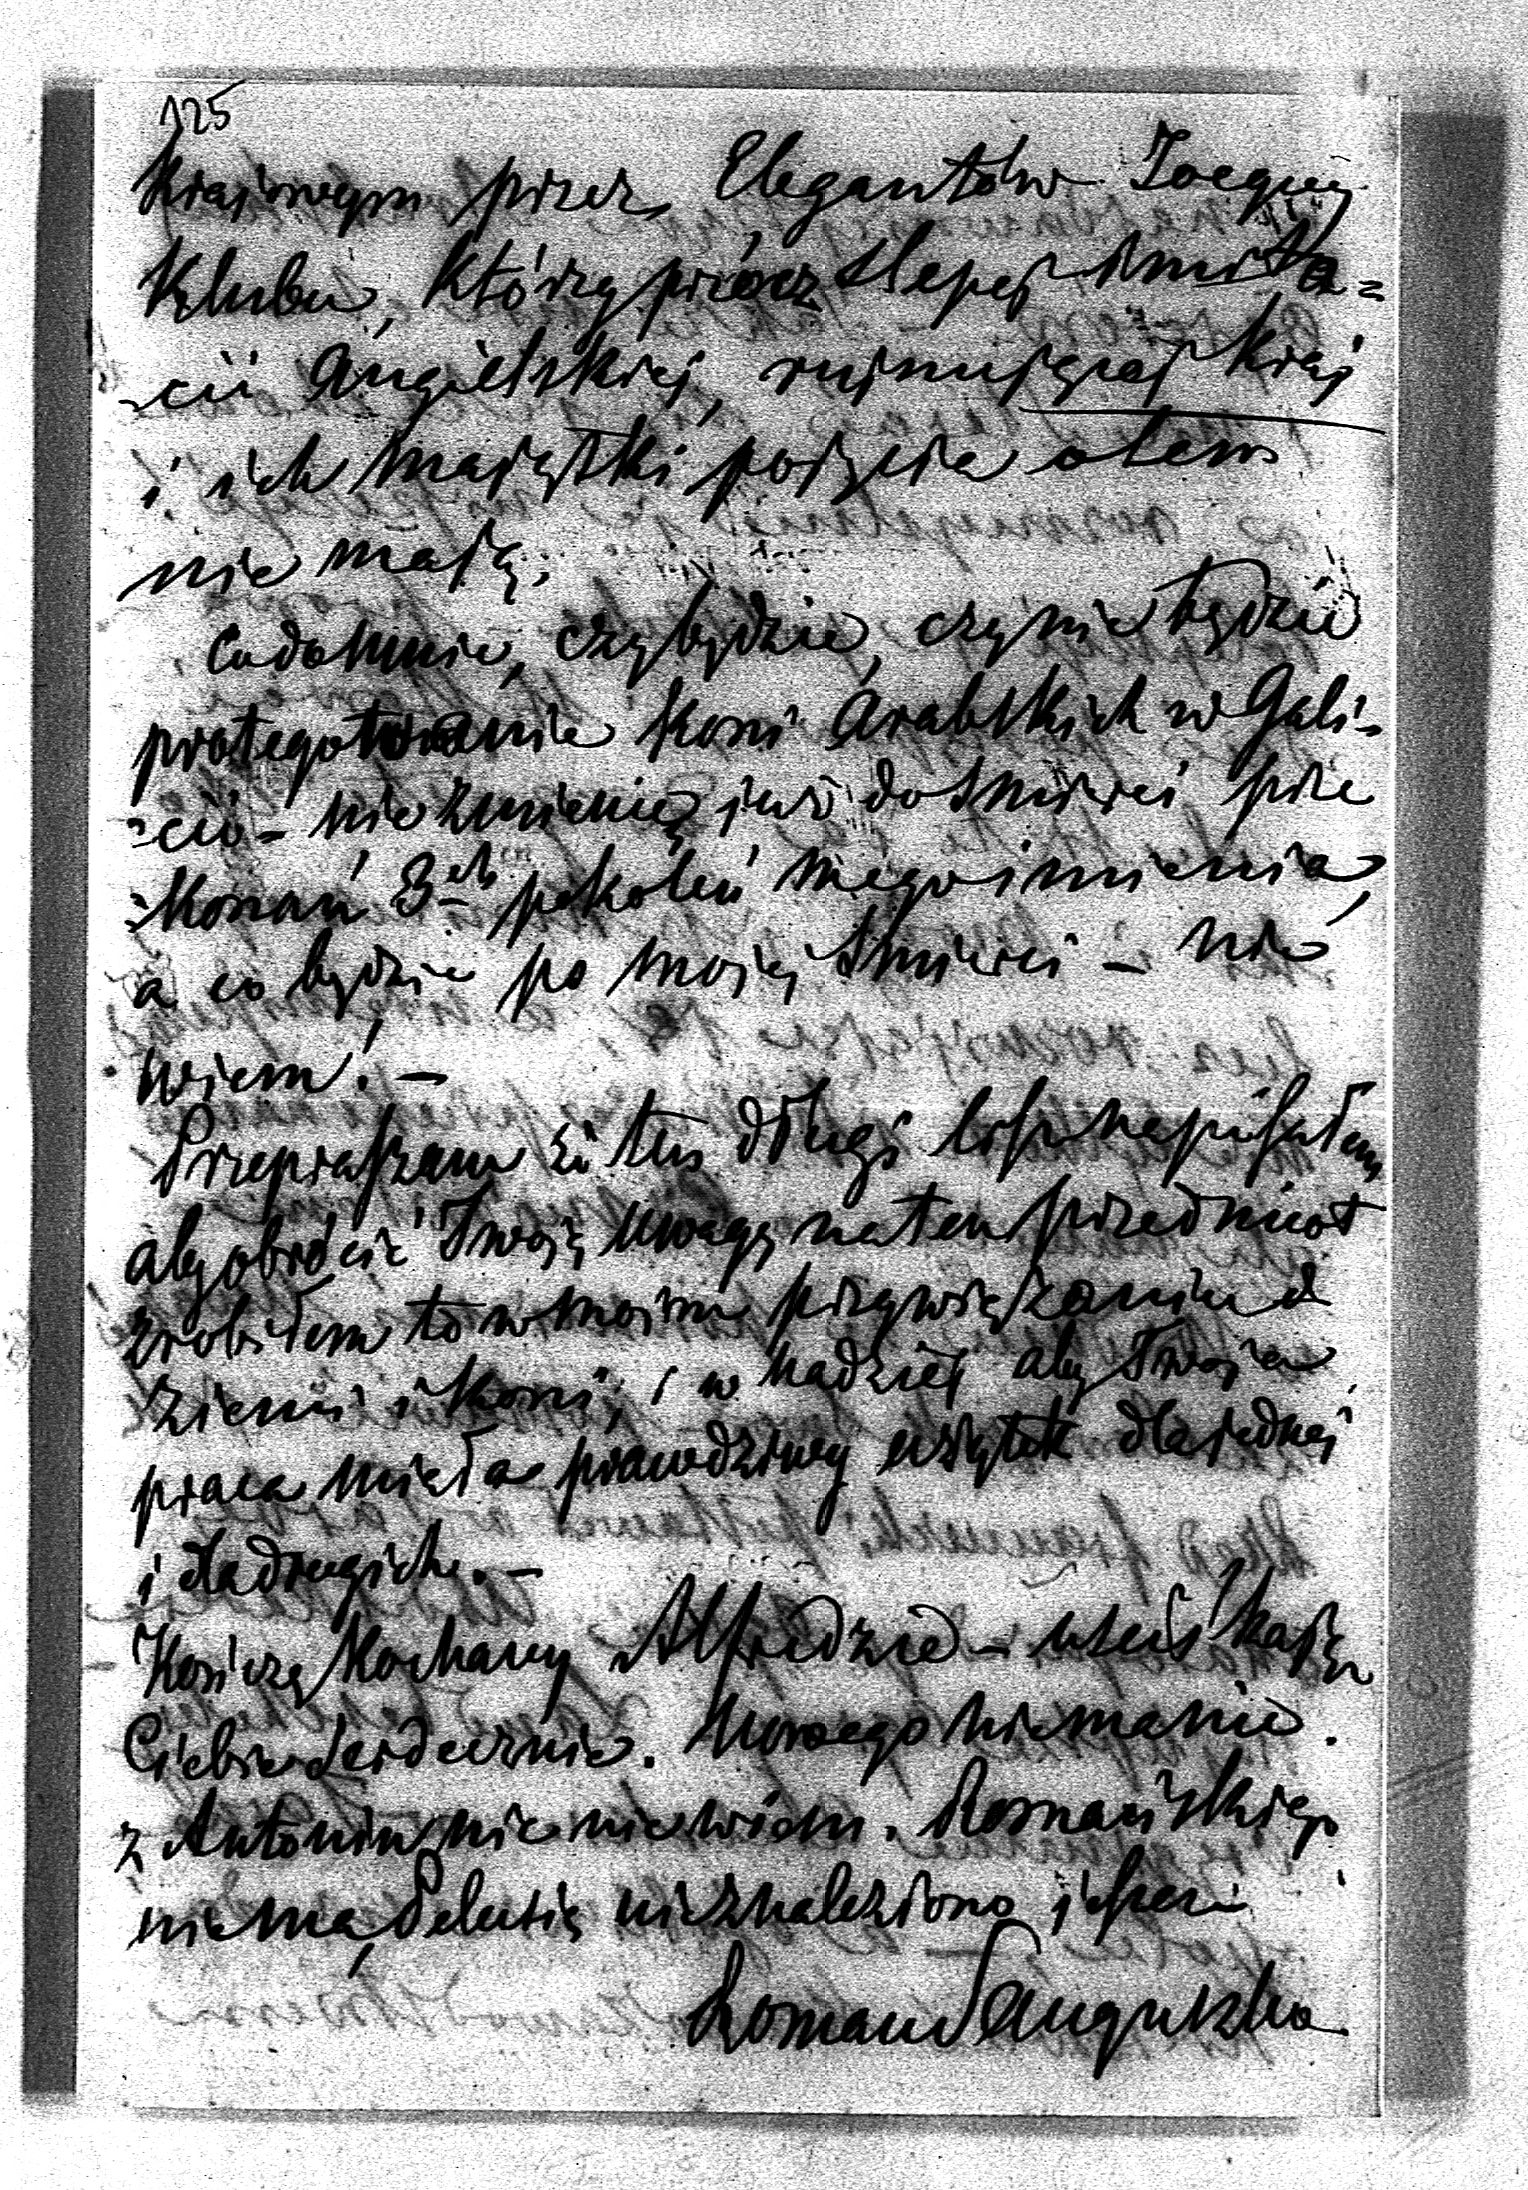 125
Krajowym przez Elegantów Jocquey
Klubu, którzy prócz slepej imita=
=cii Angielskiej, rujnującej kraj
i ich majątki pojęcia o tem
nie mają.
Co do mnie, czy będzie, czy nie będzie
protegowanie koni Arabskich w Gali=
=cii – nie zmienię już do śmierci prze
=konań 3ch pokoleń mego imienia,
a co będzie po mojej śmierci – nie
wiem! –
Przepraszam że ten długi list napisałem
aby obrócić Twoją uwagę na ten przedmiot
zrobiłem to w moim przywiązaniu d
ziemi i koni, i w nadziei aby Twoja
praca miała prawdziwy użytek dla jednej
i dla drugich. –
Kończę Kochany Alfredzie – uściskając
Ciebie serdecznie. Nowego nie ma nic.
z Antonin nic nie wiem. Romańskiego
nie ma,          nie znaleziono jeszcze
Roman Sanguszko